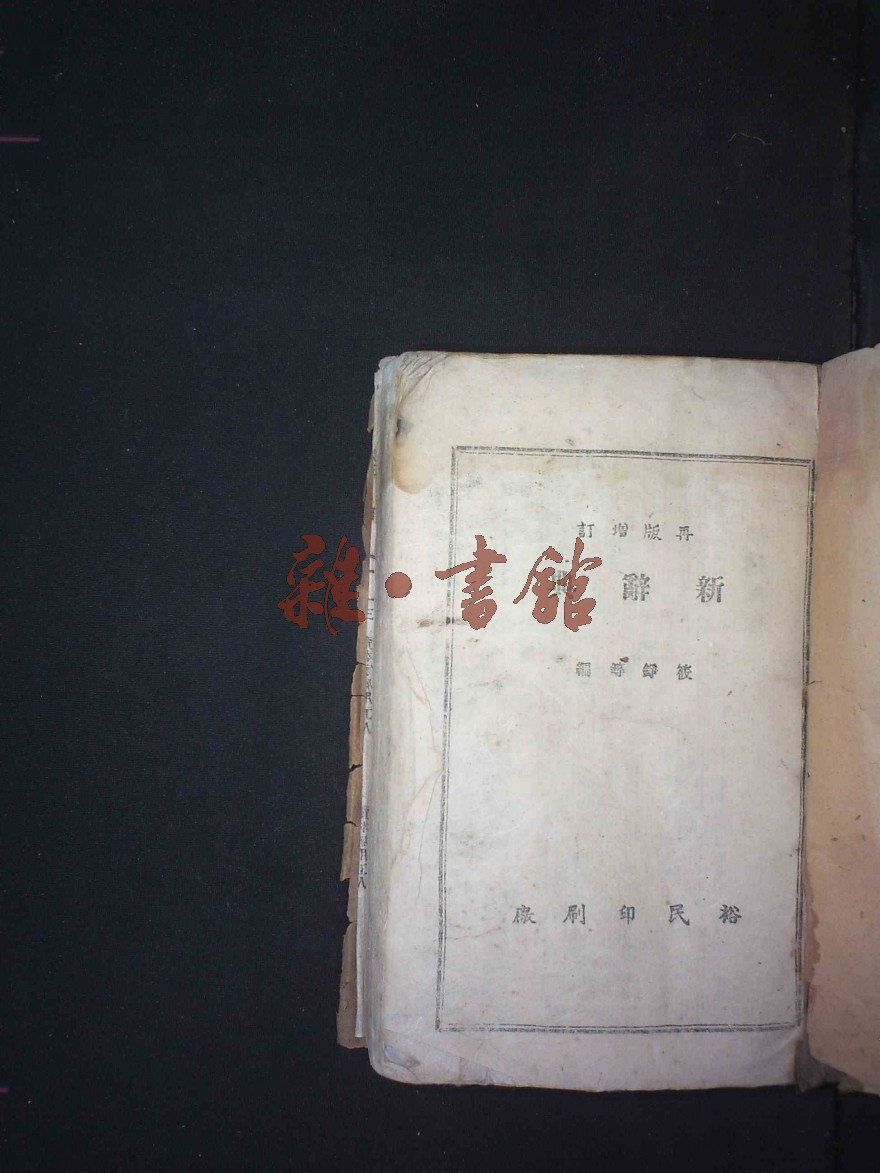 再版增訂
新辭典
錚等編
裕民印刷廠
雜·書館